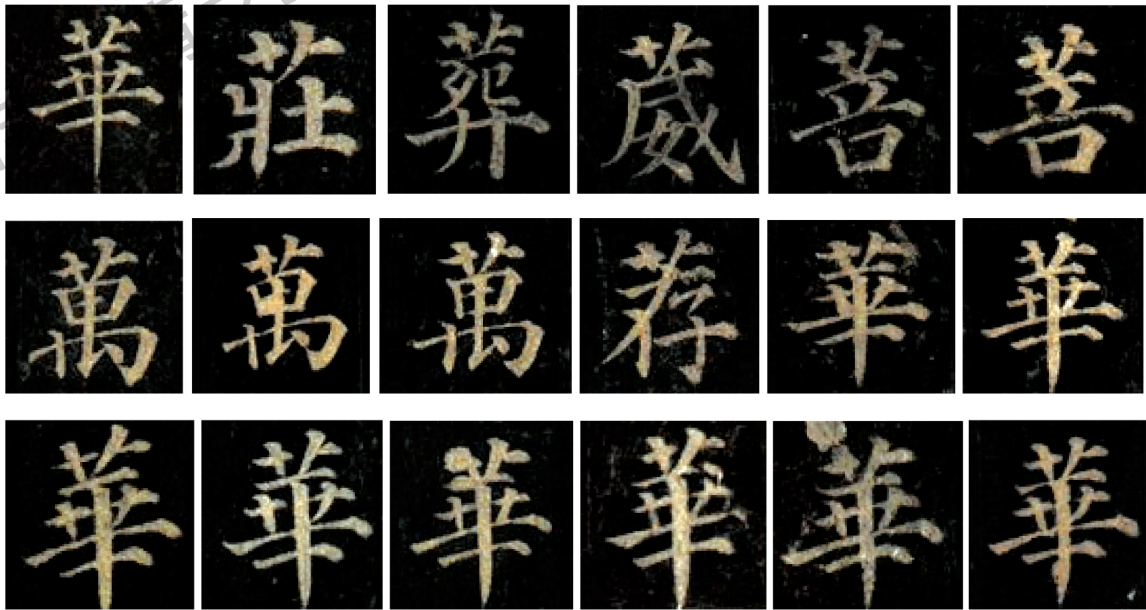 華莊葬葳善善
萬萬萬荐華華
華華華華華華